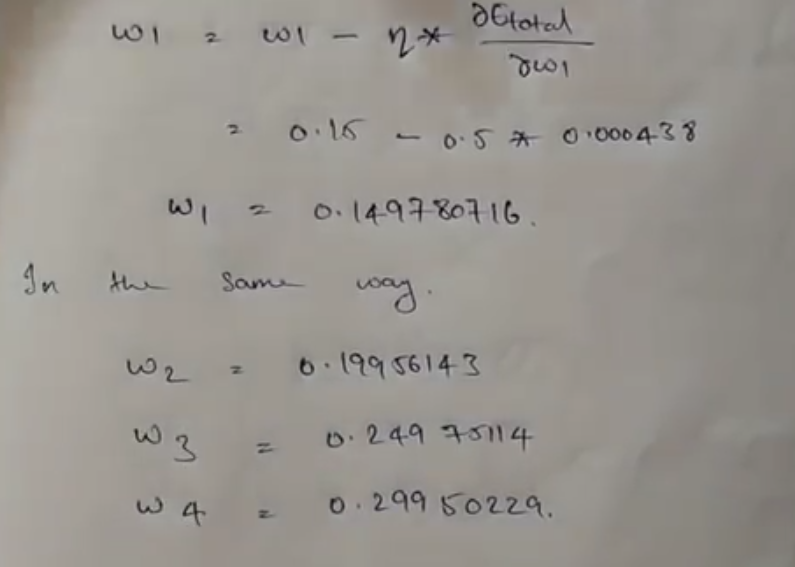 w1 = w1 - η* ∂Etotal/∂w1
= 0.15 - 0.5 * 0.000438
w1 = 0.149780716.
In the same way.
w2 = 0.19956143
w3 = 0.24975114
w4 = 0.29950229.